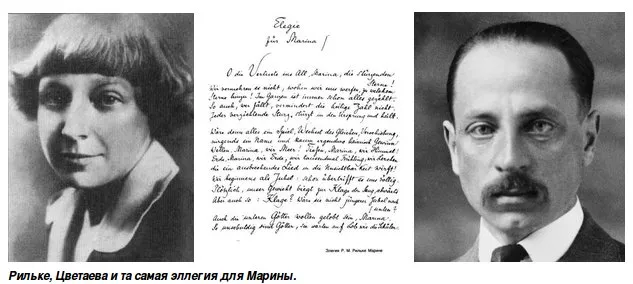 Elegie
für Marina
O die Verluste ins All, Marina, die stürzenden
Sterne!
Wir vermehren es nicht, wohin wir uns werfen, zu welchem
Sterne hinzu! Im Ganzen ist immer schon alles gezählt.
So auch, wer fällt, vermindert die heilige Zahl nicht.
Jeder verzichtende Sturz stürzt in den Ursprung und heilt.
Wäre denn alles ein Spiel, Wechsel des Gleichen, Verschiebung,
nirgends ein Name und kaum irgendwo heimisch Gewinn?
Wellen, Marina, wir Meer! Tiefen, Marina, wir Himmel.
Erde, Marina, wir Erde, wir tausendmal Frühling, wie Lerchen
die ein ausbrechendes Lied in die Unsichtbarkeit wirft!
Wir beginnens als Jubel: schon übertrifft es uns völlig.
Plötzlich, unser Gewicht biegt zur Klage den Sang abwärts
Aber auch so: Klage? Wäre sie nicht: jüngerer Jubel nach
unten?
Auch die unteren Götter wollen gelobt sein, Marina.
So unschuldig sind Götter, sie warten auf Lob wie die Schüler.
Элегия Р. М. Рильке Марине
Рильке, Цветаева и та самая эллегия для Марины.